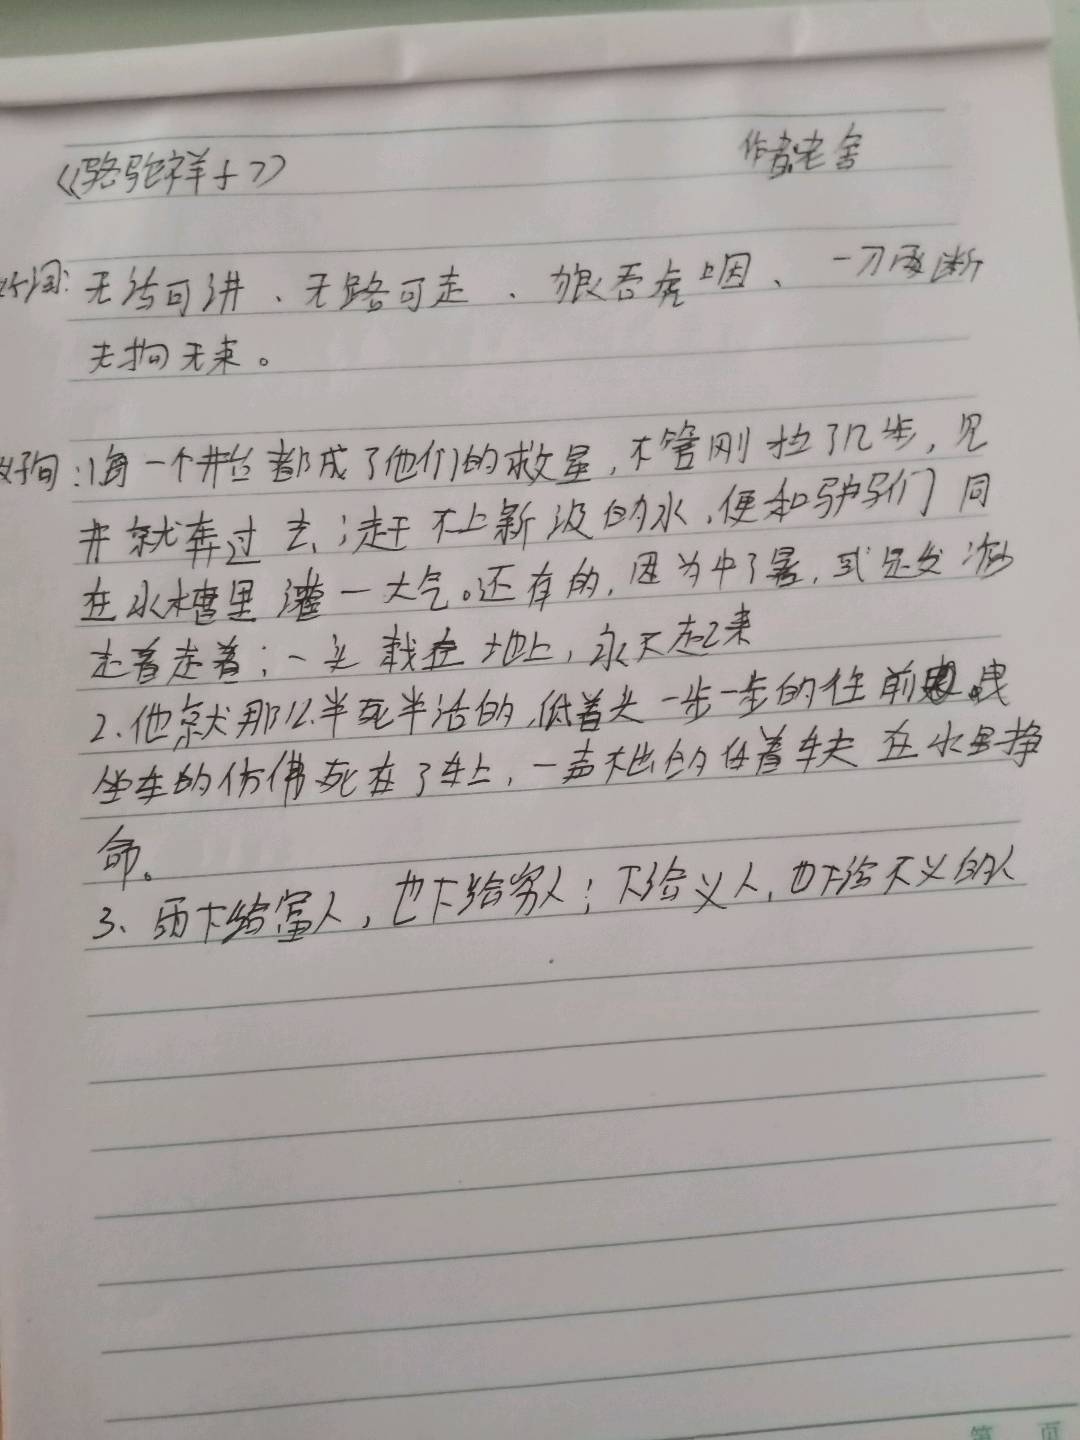 《骆驼祥子》 作者:老舍
好词: 无话可讲、无路可走、狼吞虎咽、一刀两断
无拘无束。
好句:1每一个井台都成了他们的救星,不管刚拉了几步,见
井就奔过去;赶不上新汲的水,便和驴马们同
在水槽里灌一大气。还有的,因为中了暑,或是发痧
走着走着;一头栽在地上,永不起来
2.他就那么半死半活的,低着头一步一步的往前曳。
坐车的仿佛死在了车上,一声不出的任着车夫在水里挣
命。
3、雨下给富人,也下给穷人;下给义人,也下给不义的人
第 页